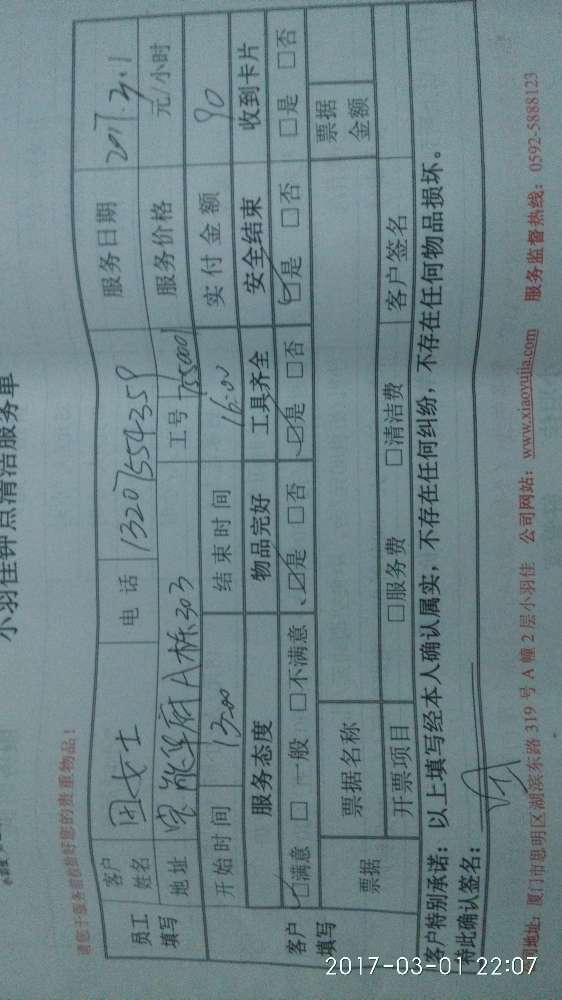 小羽佳钟点清洁服务单
请您于服务前收拾好您的贵重物品!
员工填写 客户姓名 女士 电话 13207554359 服务日期 2017.3.1
地址 A栋303 工号 服务价格 元/小时
开始时间 13:00 结束时间 16:00 实付金额 90
客户填写 服务态度 物品完好 工具齐全 安全结束 收到卡片
☑满意 □一般 □不满意 ☑是 □否 ☑是 □否 ☑是 □否 □是 □否
票据 票据名称 票据金额
开票项目 □服务费 □清洁费 客户签名
客户特别承诺:以上填写经本人确认属实,不存在任何纠纷,不存在任何物品损坏。
特此确认签名:
司地址:厦门市思明区湖滨东路 319 号 A 幢 2 层小羽佳 公司网站:www.xiaoyujia.com 服务监督热线:0592-5888123
2017-03-01 22:07